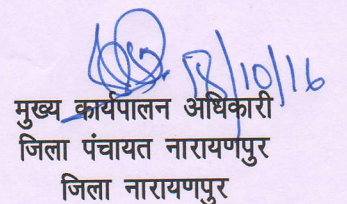 18/10/16
मुख्य कार्यपालन अधिकारी
जिला पंचायत नारायणपुर
जिला नारायणपुर